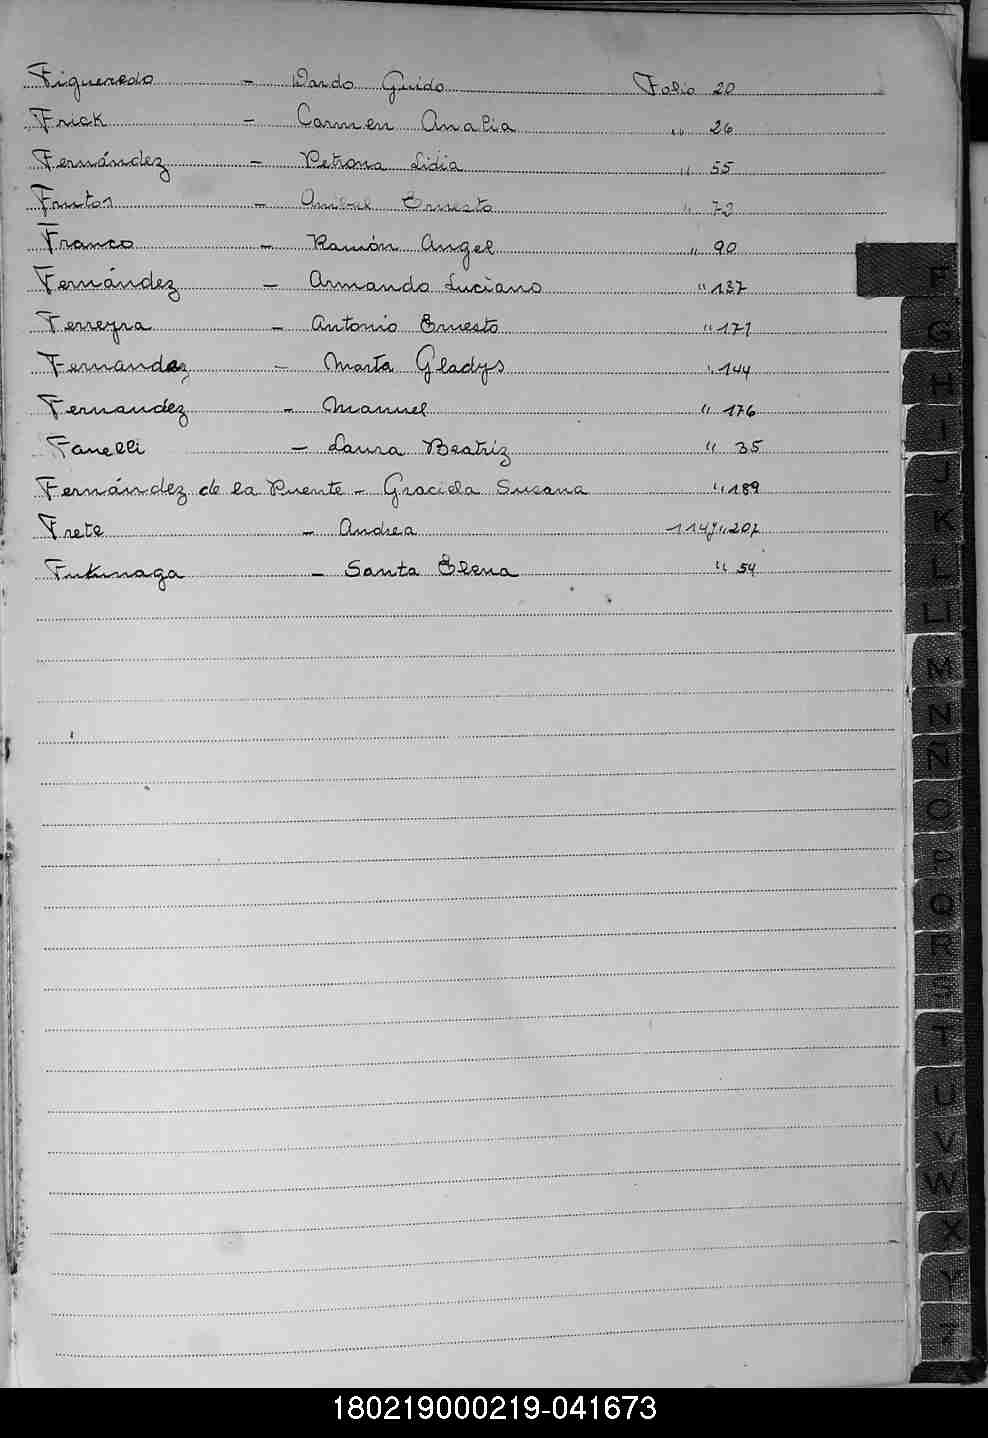 Figueredo - Dardo Guido Folio 20
Frick - Carmen Analia " 26
Fernández - Petrona Lidia " 55
Frutos - Anibal Ernesto " 72
Franco - Ramón Angel " 90
Fernández - Armando Luciano " 137
Ferreyra - Antonio Ernesto " 171
Fernandez - Marta Gladys " 144
Fernandez - Manuel " 176
Fanelli - Laura Beatriz " 35
Fernández de la Puente - Graciela Susana " 189
Frete - Andrea 114y " 207
Fukunaga - Santa Elena " 54
F
G
H
I
J
K
L
LL
M
N
Ñ
O
P
Q
R
S
T
U
V
W
X
Y
Z
180219000219-041673